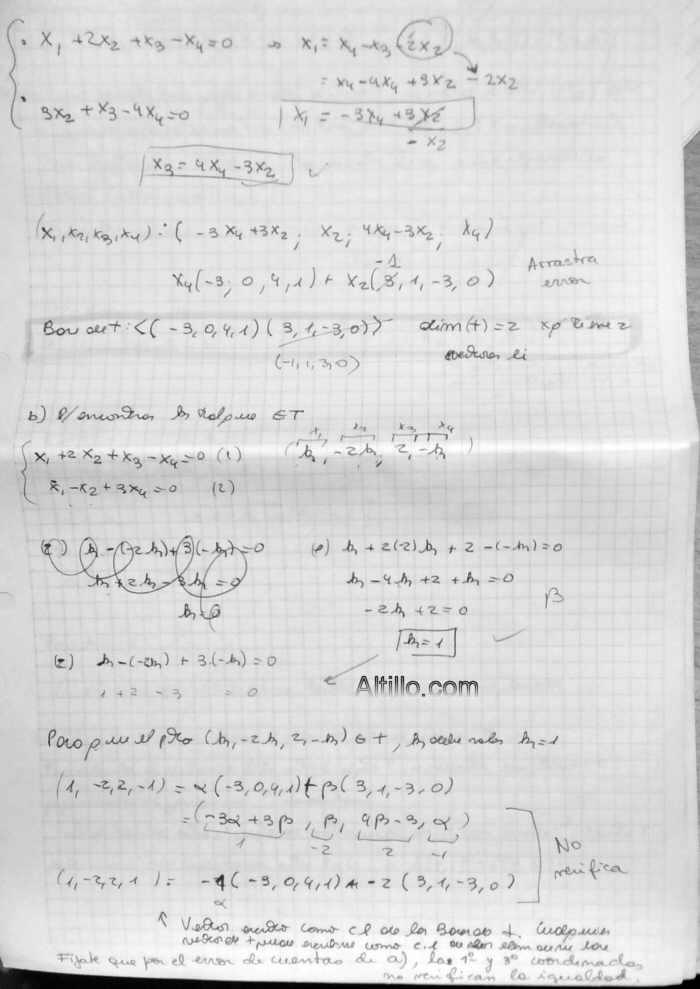 x₁ + 2x₂ + x₃ - x₄ = 0 → x₁ = x₄ - x₃ - 2x₂
= x₄ - 4x₄ + 3x₂ - 2x₂
3x₂ + x₃ - 4x₄ = 0 x₁ = -3x₄ + 3x₂
- x₂
x₃ = 4x₄ - 3x₂ ✓
(x₁, x₂, x₃, x₄) : ( -3x₄ + 3x₂ ; x₂ ; 4x₄ - 3x₂ ; x₄)
-1
x₄(-3; 0, 4, 1) + x₂(3, 1, -3, 0) Arrastra error
<( -3, 0, 4, 1) ( 3, 1, -3, 0)> dim(t) = 2
(-1, 1, 3, 0) li
b) ∈ T
x₁ x₂ x₃ x₄
x₁ + 2x₂ + x₃ - x₄ = 0 (1) (k, -2k, 2, -k)
x₁ - x₂ + 3x₄ = 0 (2)
(2) k - (-2k) + 3(-k) = 0 k + 2(-2)k + 2 - (-k) = 0
k + 2k - 3k = 0 k - 4k + 2 + k = 0
-2k + 2 = 0 β
k = 1 ✓
(2) k - (-2k) + 3.(-k) = 0
1 + 2 - 3 = 0
Altillo.com
Para que el (k, -2k, 2, -k) ∈ t, k debe valer k = 1
(1, -2, 2, -1) = α(-3, 0, 4, 1) + β(3, 1, -3, 0)
= (-3α + 3β, β, 4β - 3, α)
1 -2 2 -1
No verifica
(1, -2, 2, 1) = -1(-3, 0, 4, 1) -2 (3, 1, -3, 0)
α
↑ Vector escrito como c.l de la Base de t. Cualquier
vector de t puede escribirse como c.l de los
Fijate que por el error de cuentas de a), las 1° y 3° coordenadas
no verifican la igualdad.